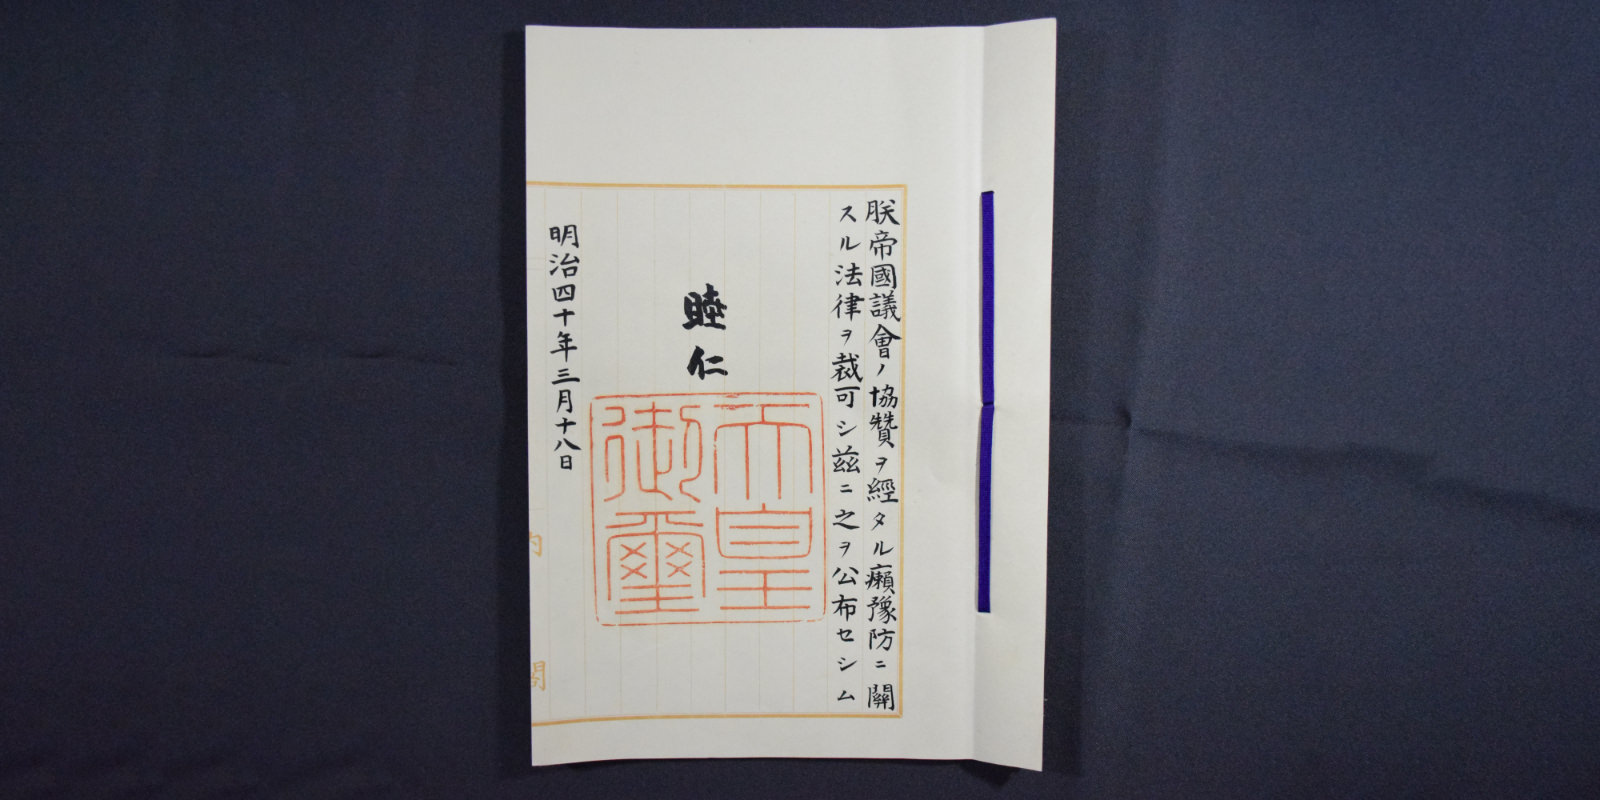 朕帝國議會ノ協贊ヲ經タル癩豫防ニ關
スル法律ヲ裁可シ茲ニ之ヲ公布セシム
睦仁
天皇
御璽
明治四十年三月十八日
内
閣